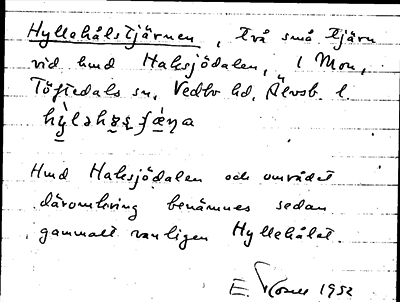 Hyllehålstjärnen, två små tjärn
vid hmd Haksjödalen, i Mon,
Töftedals sn, Vedbo hd, Älvsb. l.
Hmd Haksjödalen och området
däromkring benämnes sedan
gammalt vanligen Hyllehålet.
E. 1952